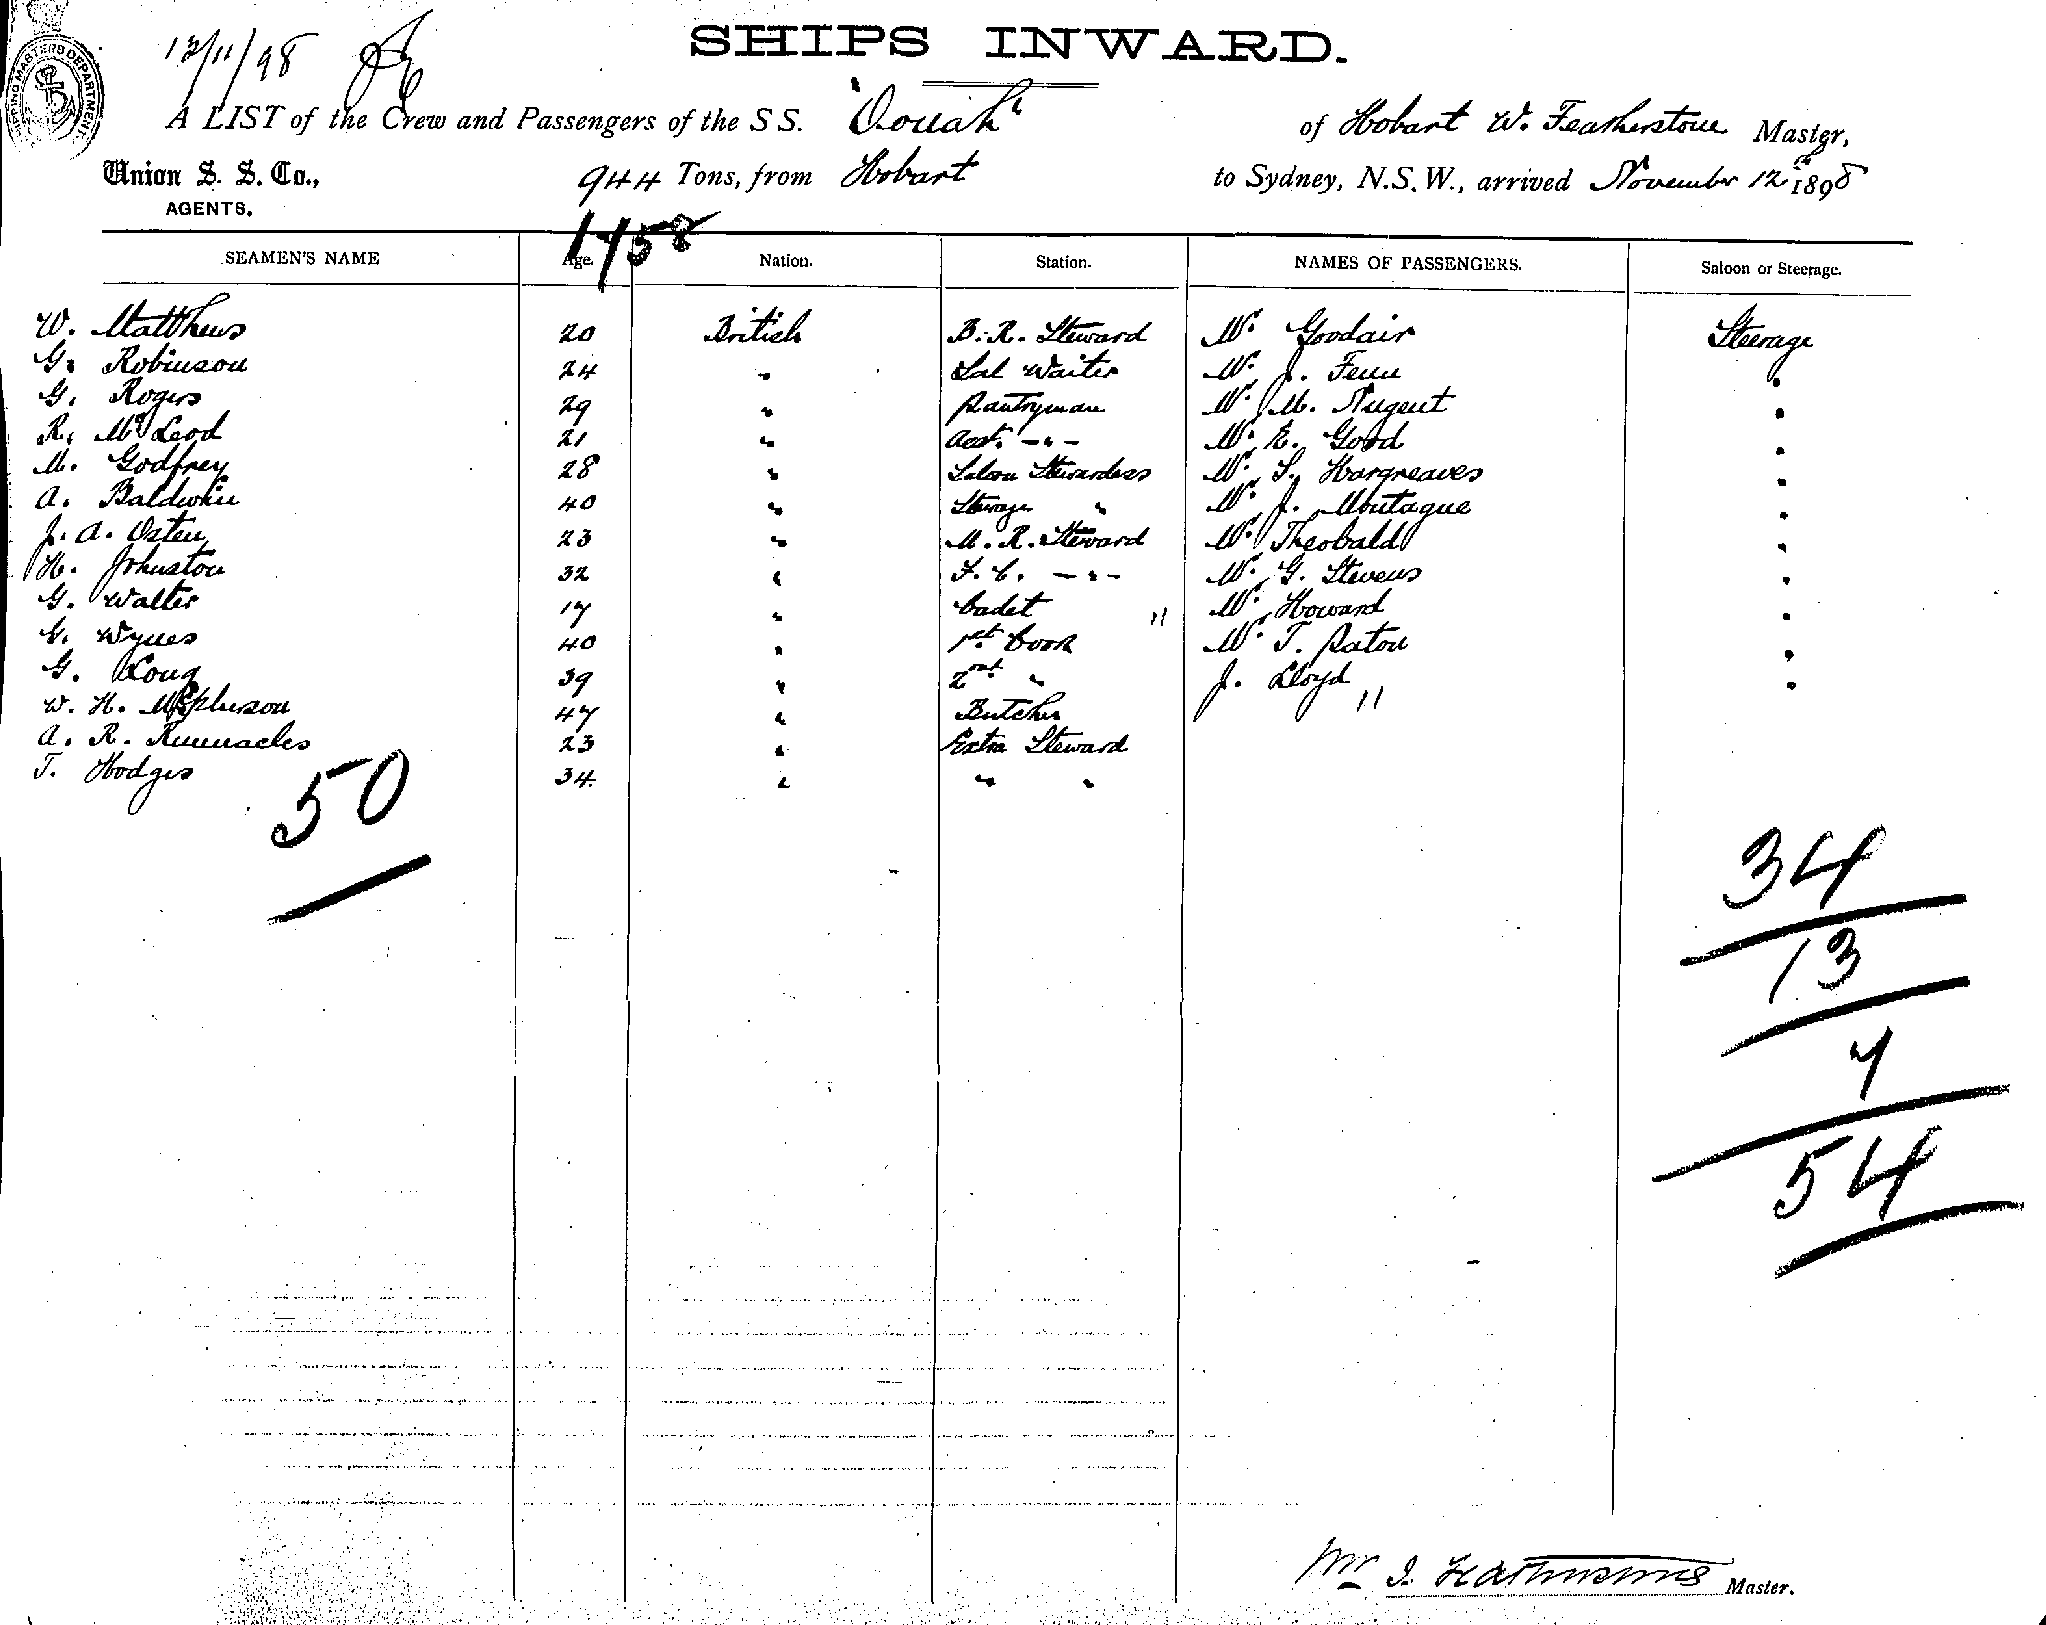 SHIPPING MASTERS DEPARTMENT
12/11/98
SHIPS INWARD.
A LIST of the Crew and Passengers of the S S. "Oonah" of Hobart W. Featherstone Master,
Union S. S. Co., 944 Tons, from Hobart to Sydney, N.S.W., arrived November 12th 1898
AGENTS.
1758
SEAMEN'S NAME Age. Nation. Station. NAMES OF PASSENGERS. Saloon or Steerage.
W. Matthews 20 British B. R. Steward Mr. Goodair Steerage
G. Robinson 24 " Sal Waiter Mr. J. Fenn "
G. Rogers 29 " Pantryman Mr. M. Nugent "
R. McLeod 21 " Asst. - " - Mr. E. Good "
M. Godfrey 28 " Saloon Stewardess Mr. S. Hargreaves "
A. Baldwin 40 " Steerage " Mr. J. Montague "
J. A. Osten 23 " M. R. Steward Mr. Theobald "
H. Johnston 32 " F. C. - " - Mr. G. Stevens "
G. Walter 17 " Cadet 11 Mr. Howard "
Wynes 40 " 1st Cook Mr. T. Paton "
G. Long 39 " 2nd " J. Lloyd "
W. H. McPherson 47 " Butcher 11
A. R. Runnacles 23 " Extra Steward
T. Hodges 34 " " "
50
34
13
7
54
Master.